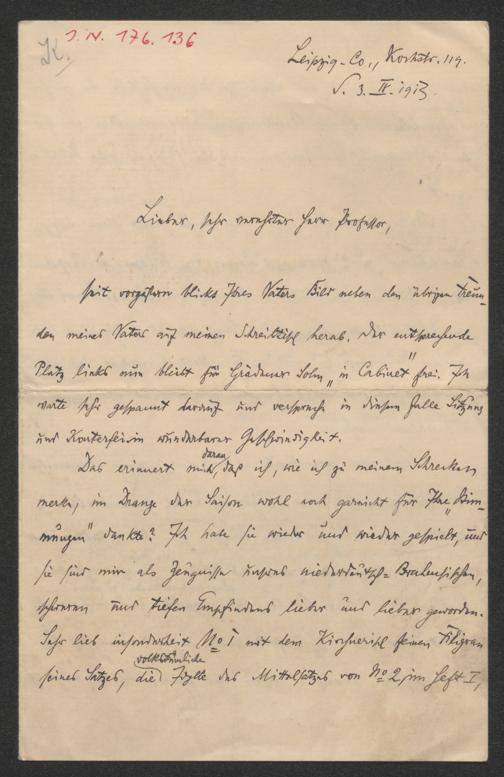 J. N. 176.136
K.
Leipzig-Co., Kochstr. 119.
d. 3. IV. 1913.
Lieber, sehr verehrter Herr Professor,
seit vorgestern blickt Ihres Vaters Bild neben den übrigen Freun-
den meines Vaters auf meinen Schreibtisch herab. Der entsprechende
Platz links nun bleibt für Grädener Sohn „in Cabinet" frei. Ich
warte sehr gespannt darauf und verspreche in diesem Falle Sitzung
und Konterfei in wunderbarer Geschwindigkeit.
Das erinnert mich daran, daß ich, wie ich zu meinem Schrecken
merke, im Drange der Saison wohl noch garnicht für Ihre „Stim-
mungen" dankte? Ich habe sie wieder und wieder gespielt, und
sie sind mir als Zeugnisse unseres niederdeutsch-Brahmsischen,
schweren und tiefen Empfindens lieber und lieber geworden.
Sehr lieb insonderheit No 1 mit dem Kirchnerisch feinen Filigran
seines Satzes, die volkstümliche Idylle des Mittelsatzes von No 2, im Heft I,